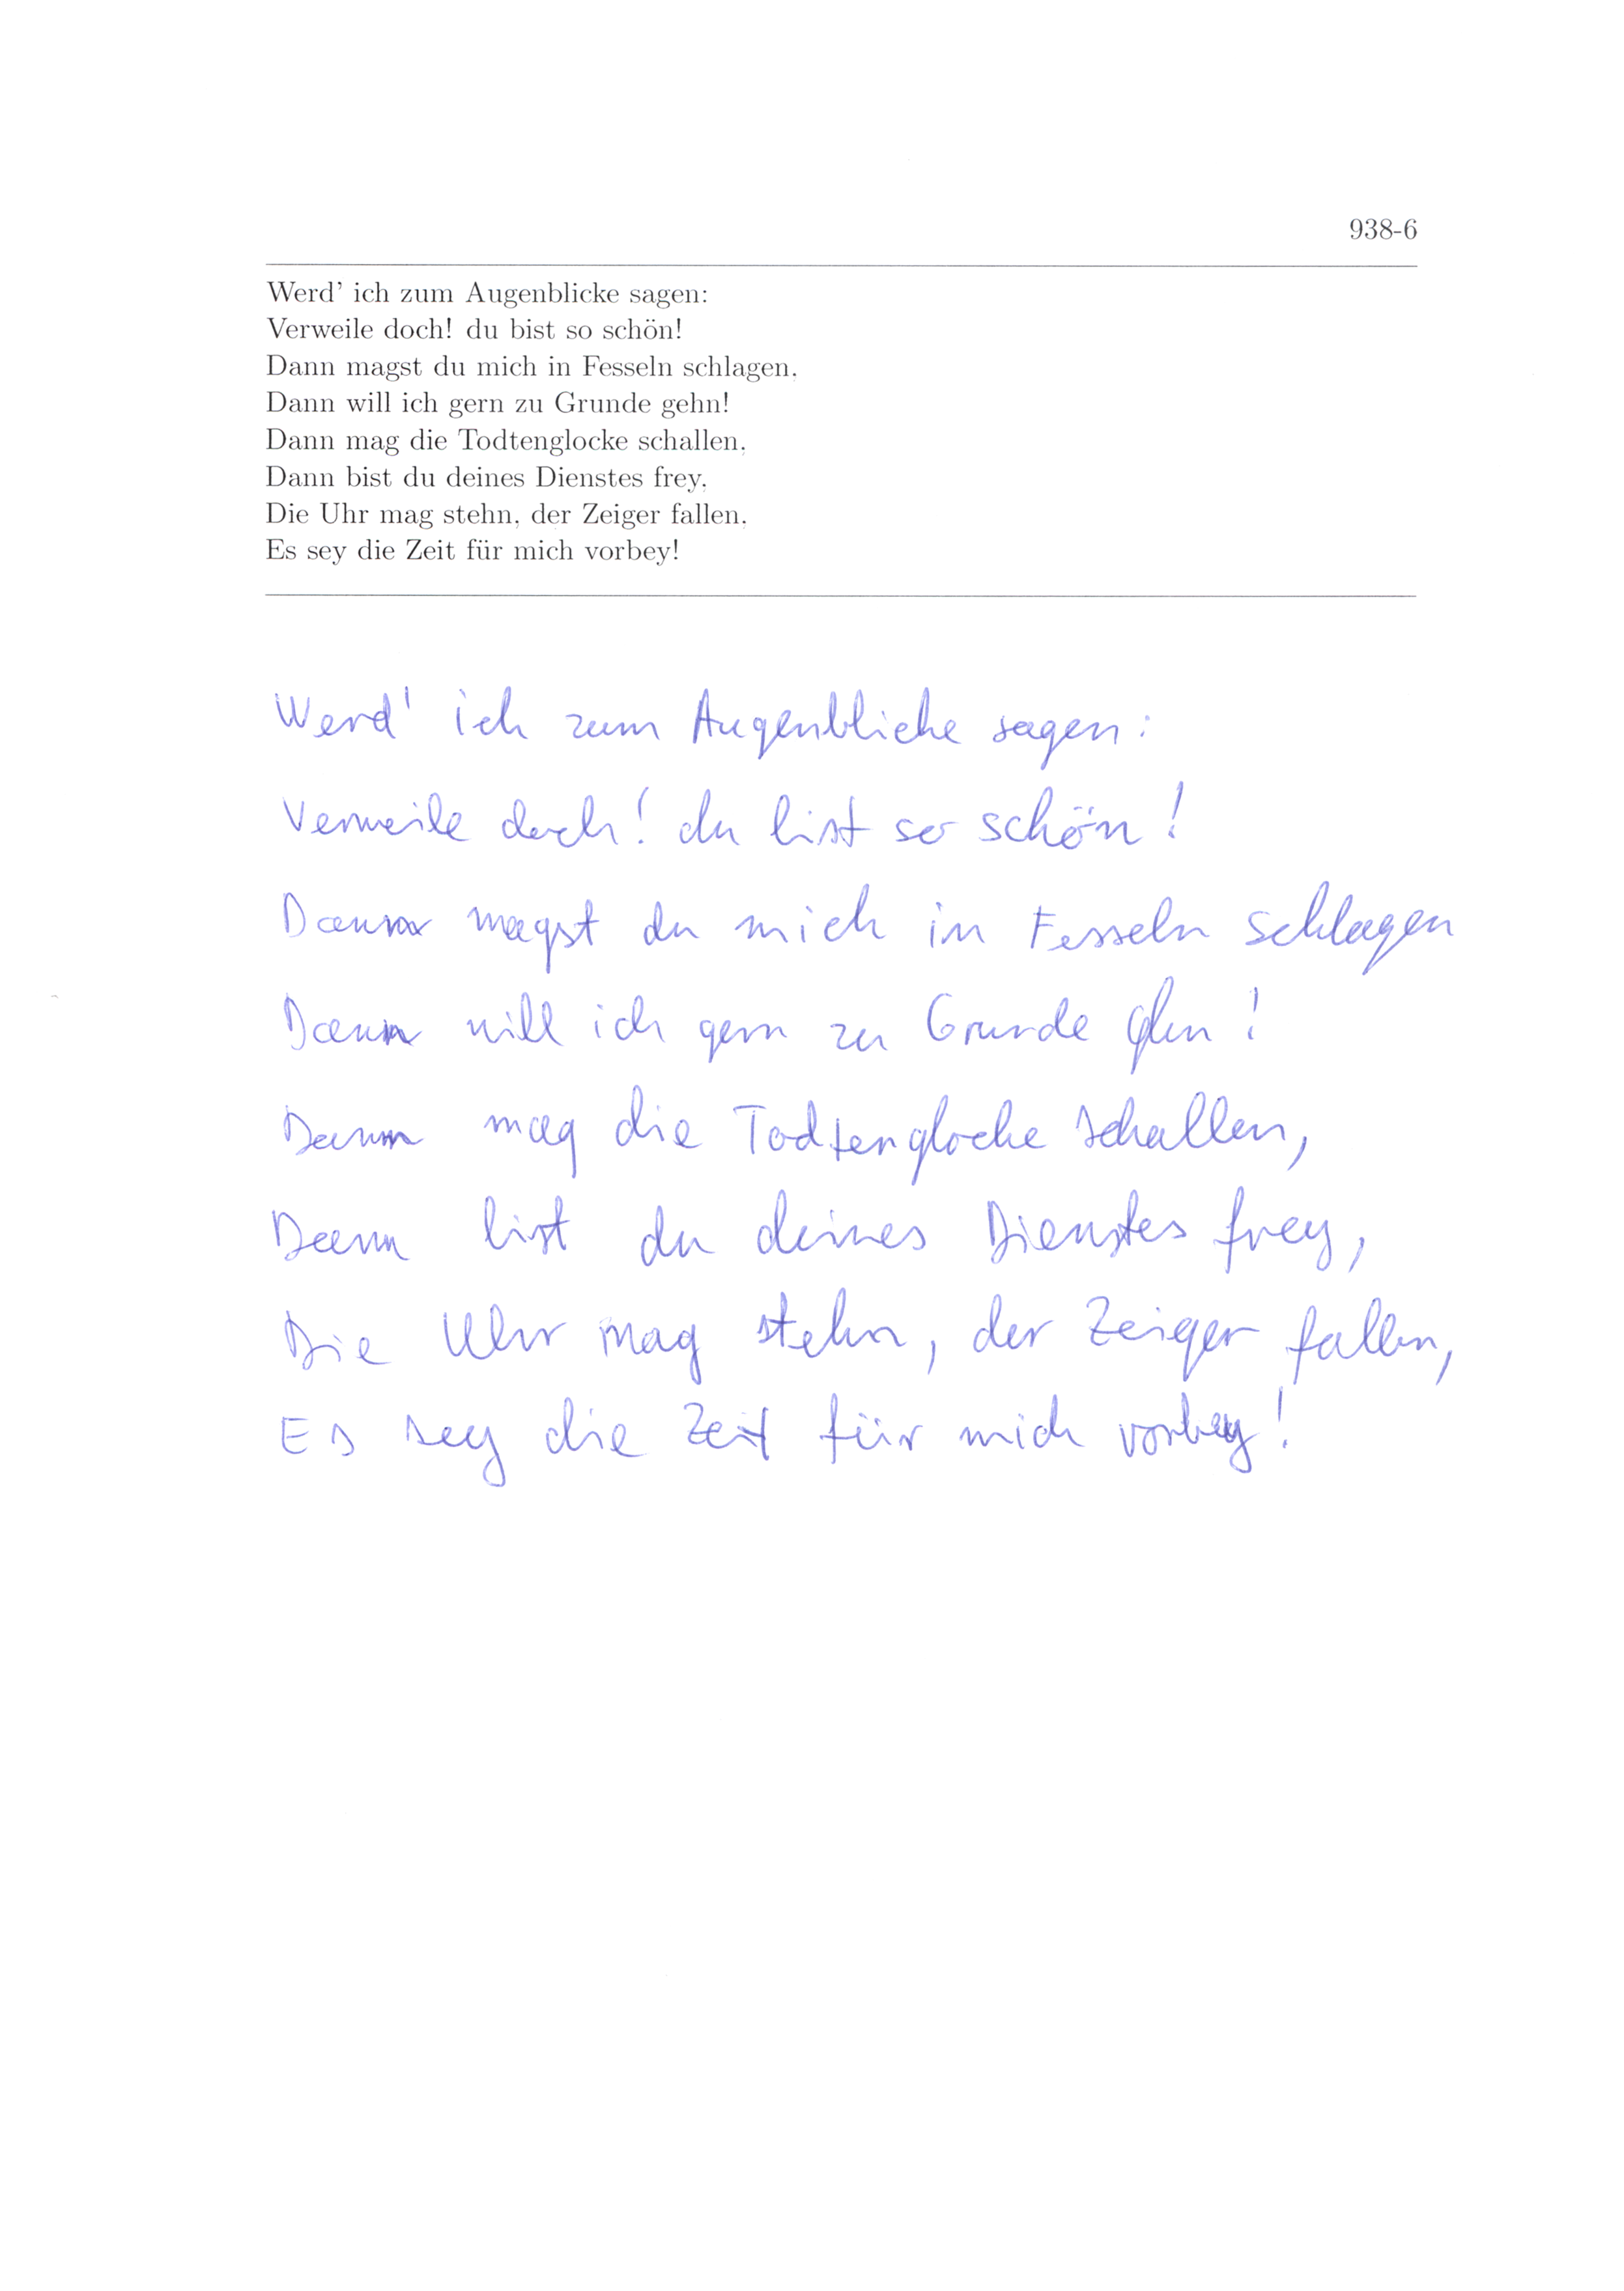 938-6
Werd' ich zum Augenblicke sagen:
Verweile doch! du bist so schön!
Dann magst du mich in Fesseln schlagen,
Dann will ich gern zu Grunde gehn!
Dann mag die Todtenglocke schallen,
Dann bist du deines Dienstes frey,
Die Uhr mag stehn, der Zeiger fallen,
Es sey die Zeit für mich vorbey!
Werd' ich zum Augenblicke sagen:
Verweile doch! du bist so schön!
Dann magst du mich in Fesseln schlagen
Dann will ich gern zu Grunde gehn!
Dann mag die Todtenglocke schallen,
Dann bist du deines Dienstes frey,
Die Uhr mag stehn, der Zeiger fallen,
Es sey die Zeit für mich vorbey!